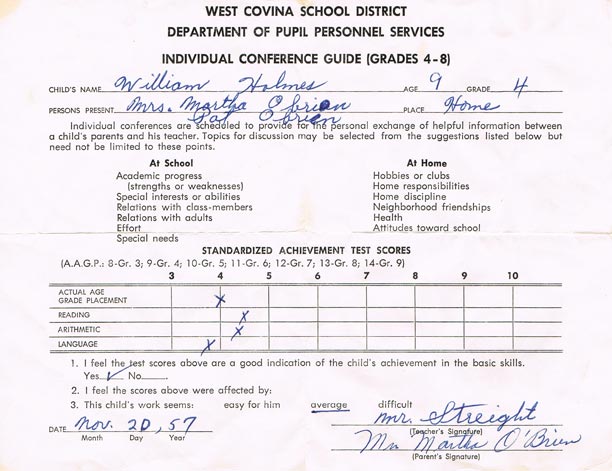 WEST COVINA SCHOOL DISTRICT
DEPARTMENT OF PUPIL PERSONNEL SERVICES
INDIVIDUAL CONFERENCE GUIDE (GRADES 4-8)
CHILD'S NAME William Holmes AGE 9 GRADE 4
PERSONS PRESENT Mrs. Martha O'brien PLACE Home
Pat O'brien
Individual conferences are scheduled to provide for the personal exchange of helpful information between
a child's parents and his teacher. Topics for discussion may be selected from the suggestions listed below but
need not be limited to these points.
At School At Home
Academic progress Hobbies or clubs
(strengths or weaknesses) Home responsibilities
Special interests or abilities Home discipline
Relations with class-members Neighborhood friendships
Relations with adults Health
Effort Attitudes toward school
Special needs
STANDARDIZED ACHIEVEMENT TEST SCORES
(A.A.G.P.: 8-Gr. 3; 9-Gr. 4; 10-Gr. 5; 11-Gr. 6; 12-Gr. 7; 13-Gr. 8; 14-Gr. 9)
3 4 5 6 7 8 9 10
ACTUAL AGE
GRADE PLACEMENT X
READING X
ARITHMETIC X
LANGUAGE X
1. I feel the test scores above are a good indication of the child's achievement in the basic skills.
Yes ✓ No
2. I feel the scores above were affected by:
3. This child's work seems: easy for him average difficult
Mr. Streight
DATE Nov. 20, 57 (Teacher's Signature)
Month Day Year Mrs Martha O'Brien
(Parent's Signature)